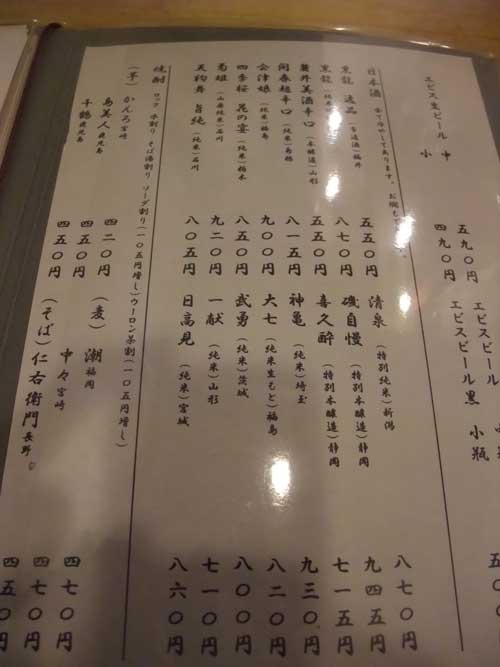 エビス生ビール
中 五九〇円 エビスビール
小 四九〇円 エビスビール黒 小瓶
日本酒 全て冷やしてあります。
黒龍 逸品(普通酒)福井 五五〇円 清泉(特別純米)新潟 八七〇円
黒龍(純米) 八七〇円 磯自慢(特別本醸造)静岡 九四五円
麓井美酒辛口(本醸造)山形 五五〇円 喜久酔(特別本醸造)静岡 七一五円
開春超辛口(純米)島根 八一五円 神亀(純米)埼玉 九三〇円
会津娘(純米)福島 九〇〇円 大七(純米生もと)福島 八二〇円
四季桜 花の宴(純米)栃木 八五〇円 武勇(純米)茨城 八〇〇円
菊姫(山廃純米)石川 九二〇円 一献(純米)山形 七一〇円
天狗舞 旨純(純米)石川 八〇五円 日高見(純米)宮城 八六〇円
焼酎 ロック 水割り そば湯割り ソーダ割り(一〇五円増し)ウーロン茶割(一〇五円増し)
(芋)かんろ宮崎 四二〇円 (麦)潮福岡 四七〇円
島美人鹿児島 四五〇円 中々宮崎 四七〇円
千鶴鹿児島 四五〇円 (そば)仁右衛門長野 四五〇円